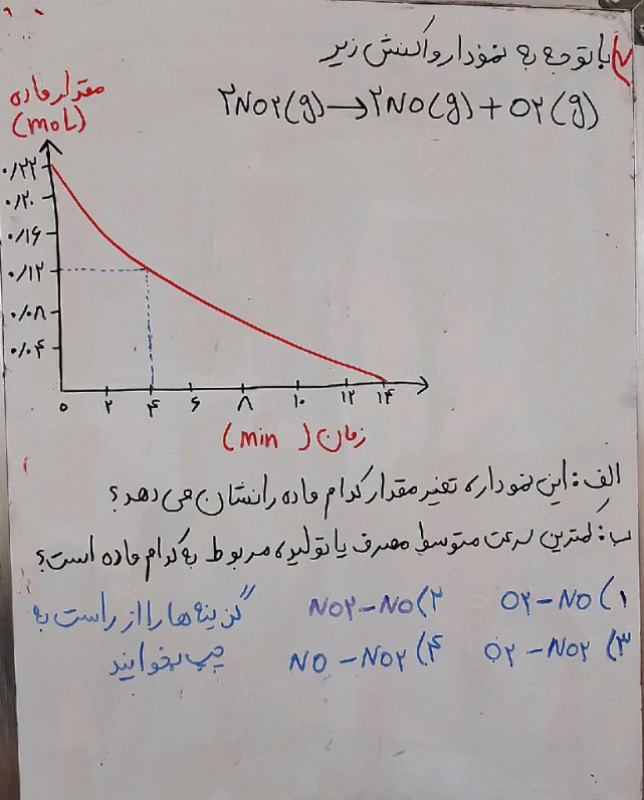 ۷) با توجه به نمودار واکنش زیر
۲NO۲(g) → ۲NO(g) + O۲(g)
مقدار ماده
(moL)
۰/۲۲
۰/۲۰
۰/۱۶
۰/۱۲
۰/۰۸
۰/۰۴
۰ ۲ ۴ ۶ ۸ ۱۰ ۱۲ ۱۴
زمان (min)
الف: این نمودار، تغیر مقدار کدام ماده را نشان می دهد؟
ب: کمترین سرعت متوسط مصرف یا تولید، مربوط به کدام ماده است؟
۱) NO - O۲ ۲) NO - NO۲ گزینه ها را از راست به
۳) NO۲ - O۲ ۴) NO۲ - NO چپ بخوانید